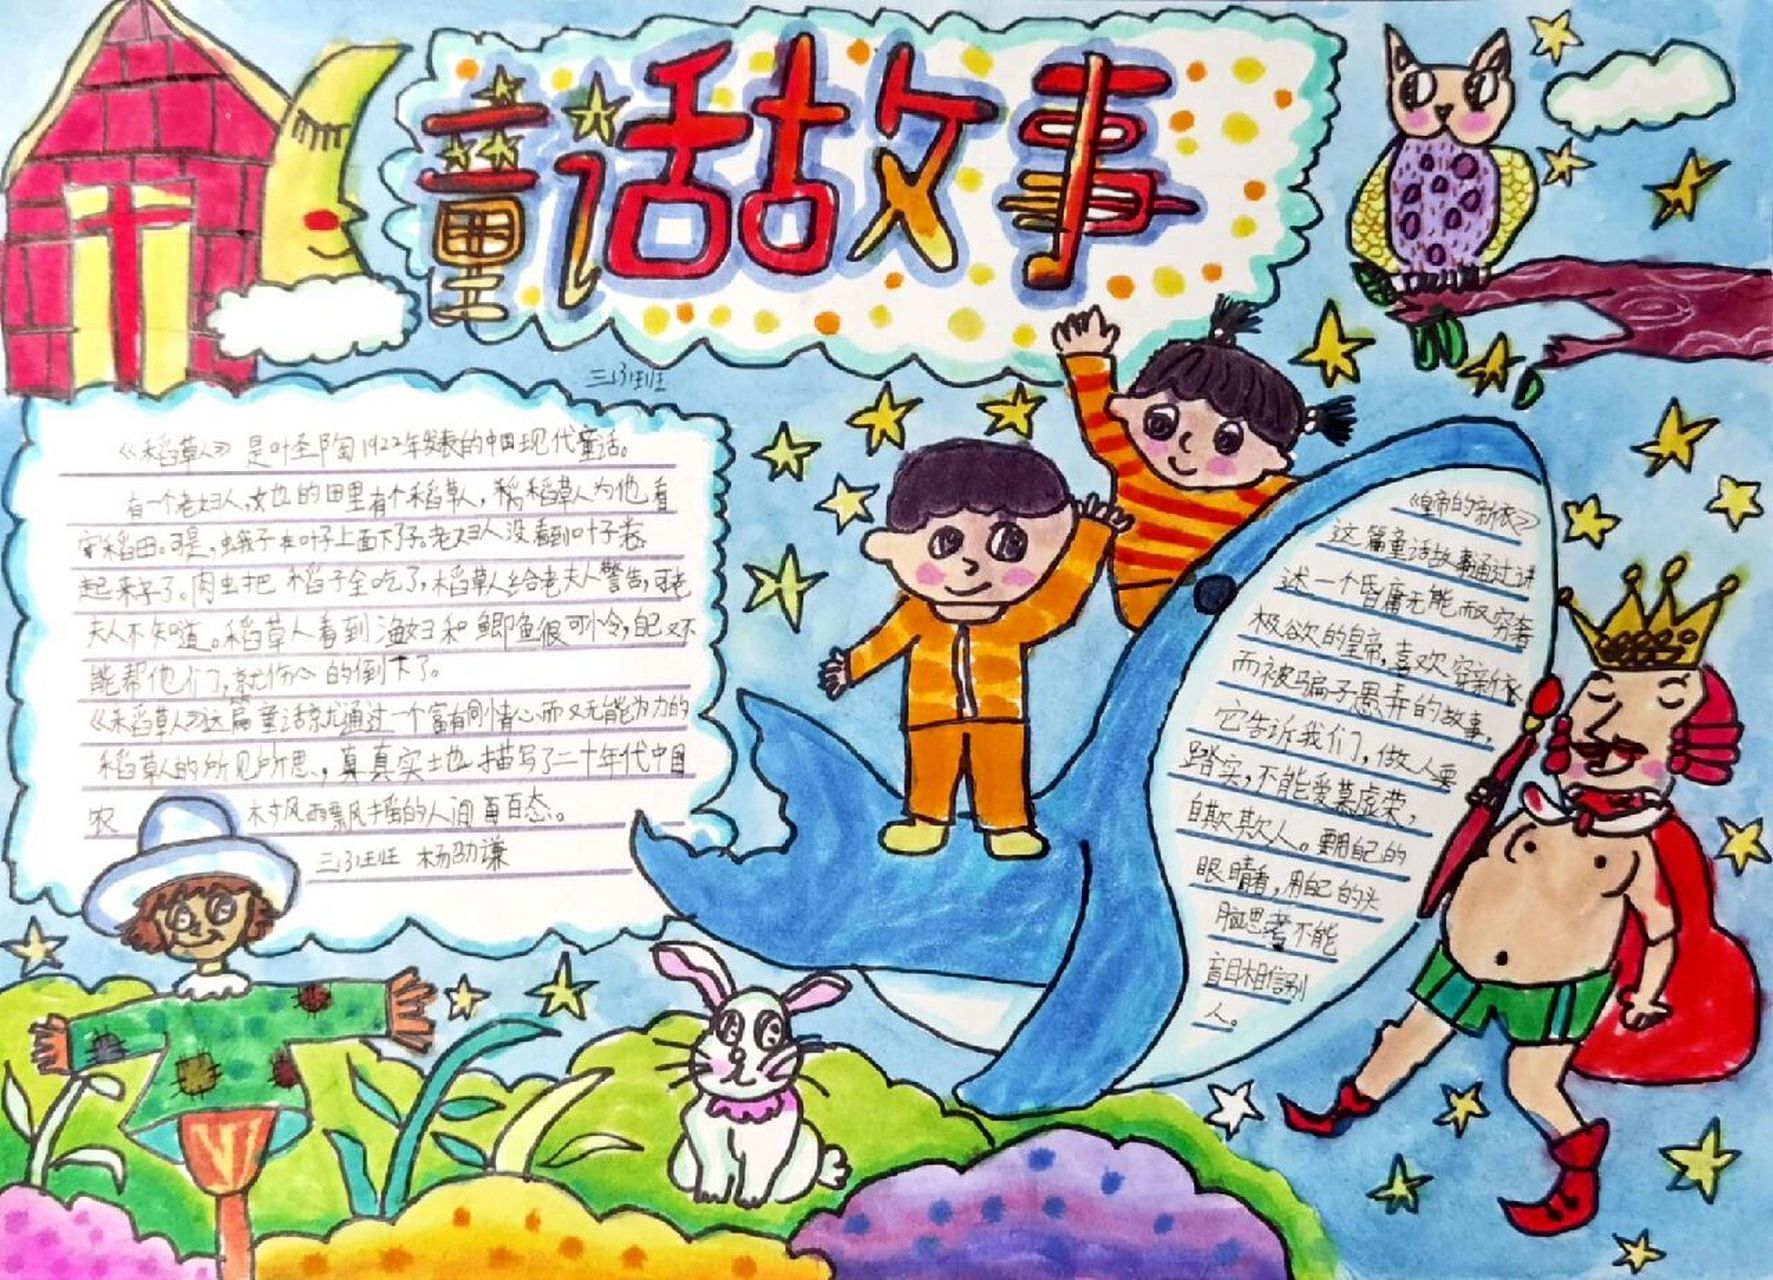 童话故事
三(3)班班
《稻草人》是叶圣陶1922年发表的中国现代童话。
有一个老妇人,她的田里有个稻草人,稻草人为他看
守稻田。可是,蛾子在叶子上面下了子。老妇人没看到叶子卷
起来了。肉虫把稻子全吃了,稻草人给老夫人警告,可老
夫人不知道。稻草人看到渔妇和鲫鱼很可怜,自己又不
能帮他们,就伤心的倒下了。
《稻草人》这篇童话就通过一个富有同情心而又无能为力的
稻草人的所见所思,真真实地描写了二十年代中国
农村风雨飘摇的人间百态。
三(3)班 杨劭谦
《皇帝的新衣》
这篇童话故事通过讲
述一个昏庸无能而又穷奢
极欲的皇帝,喜欢穿新衣
而被骗子愚弄的故事,
它告诉我们,做人要
踏实,不能爱慕虚荣,
自欺欺人。要用自己的
眼睛看,用自己的头
脑思考不能
盲目相信别
人。